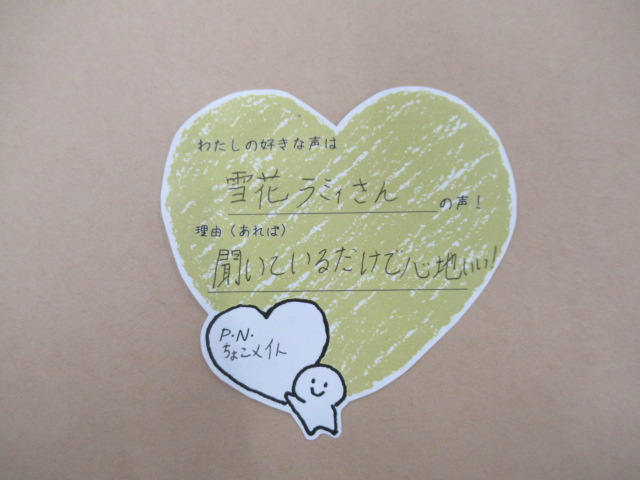 わたしの好きな声は
雪花ラミィさん の声!
理由(あれば)
聞いているだけで心地いい!
P.N.
ちょこメイト